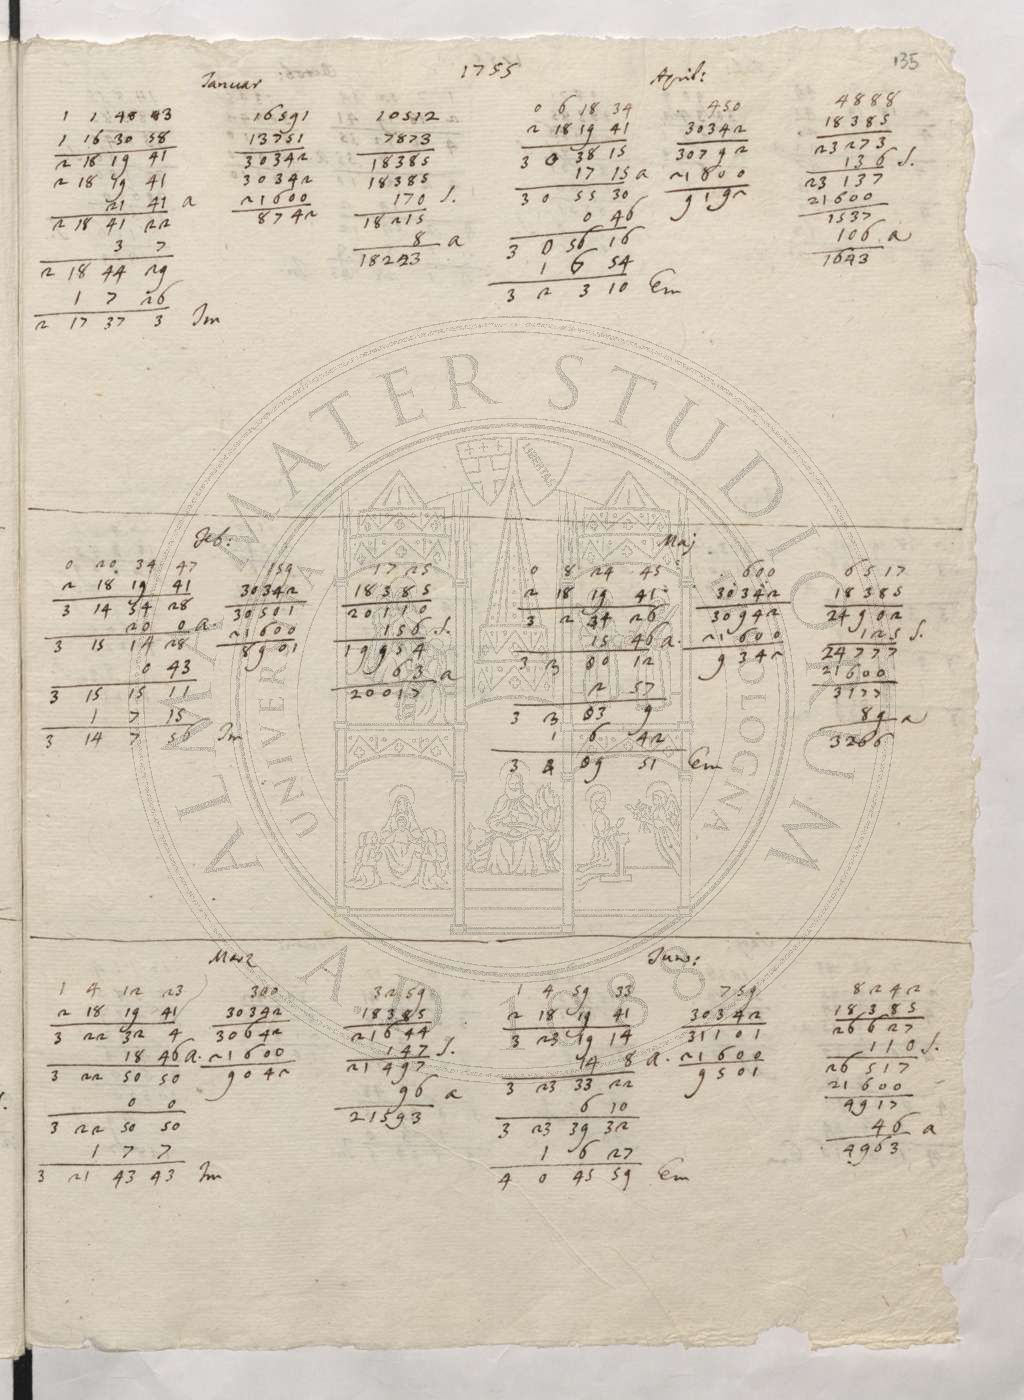 135
1755
Januar
1 1 48 43
1 16 30 58
2 18 19 41
2 18 19 41
21 41 a
2 18 41 22
3 7
2 18 44 29
1 7 26
2 17 37 3 Im
16591
13751
30342
30342
21600
8742
10512
7873
18385
18385
170 S.
18215
8 a
18223
April:
0 6 18 34
2 18 19 41
3 0 38 15
17 15 a
3 0 55 30
0 46
3 0 56 16
1 6 54
3 2 3 10 Em
450
30342
30792
21600
9192
4888
18385
23273
136 S.
23137
21600
1537
106 a
1643
Feb:
0 20 34 47
2 18 19 41
3 14 54 28
20 0 a.
3 15 14 28
0 43
3 15 15 11
1 7 15
3 14 7 56 Im
159
30342
30501
21600
8901
1725
18385
20110
156 S.
19954
63 a
20017
Maj
0 8 24 45
2 18 19 41
3 2 44 26
15 46 a.
3 3 00 12
2 57
3 3 03 9
1 6 42
3 4 09 51 Em
600
30342
30942
21600
9342
6517
18385
24902
125 S.
24777
21600
3177
89 a
3266
Marz
1 4 12 23
2 18 19 41
3 22 32 4
18 46 a.
3 22 50 50
0 0
3 22 50 50
1 7 7
3 21 43 43 Im
300
30342
30642
21600
9042
3259
18385
21644
147 S.
21497
96 a
21593
Juno:
1 4 59 33
2 18 19 41
3 23 19 14
14 8 a.
3 23 33 22
6 10
3 23 39 32
1 6 27
4 0 45 59 Em
759
30342
31101
21600
9501
8242
18385
26627
110 S.
26517
21600
4917
46 a
4963
ALMA MATER STUDIORUM
A.D. 1088
LIBERTAS